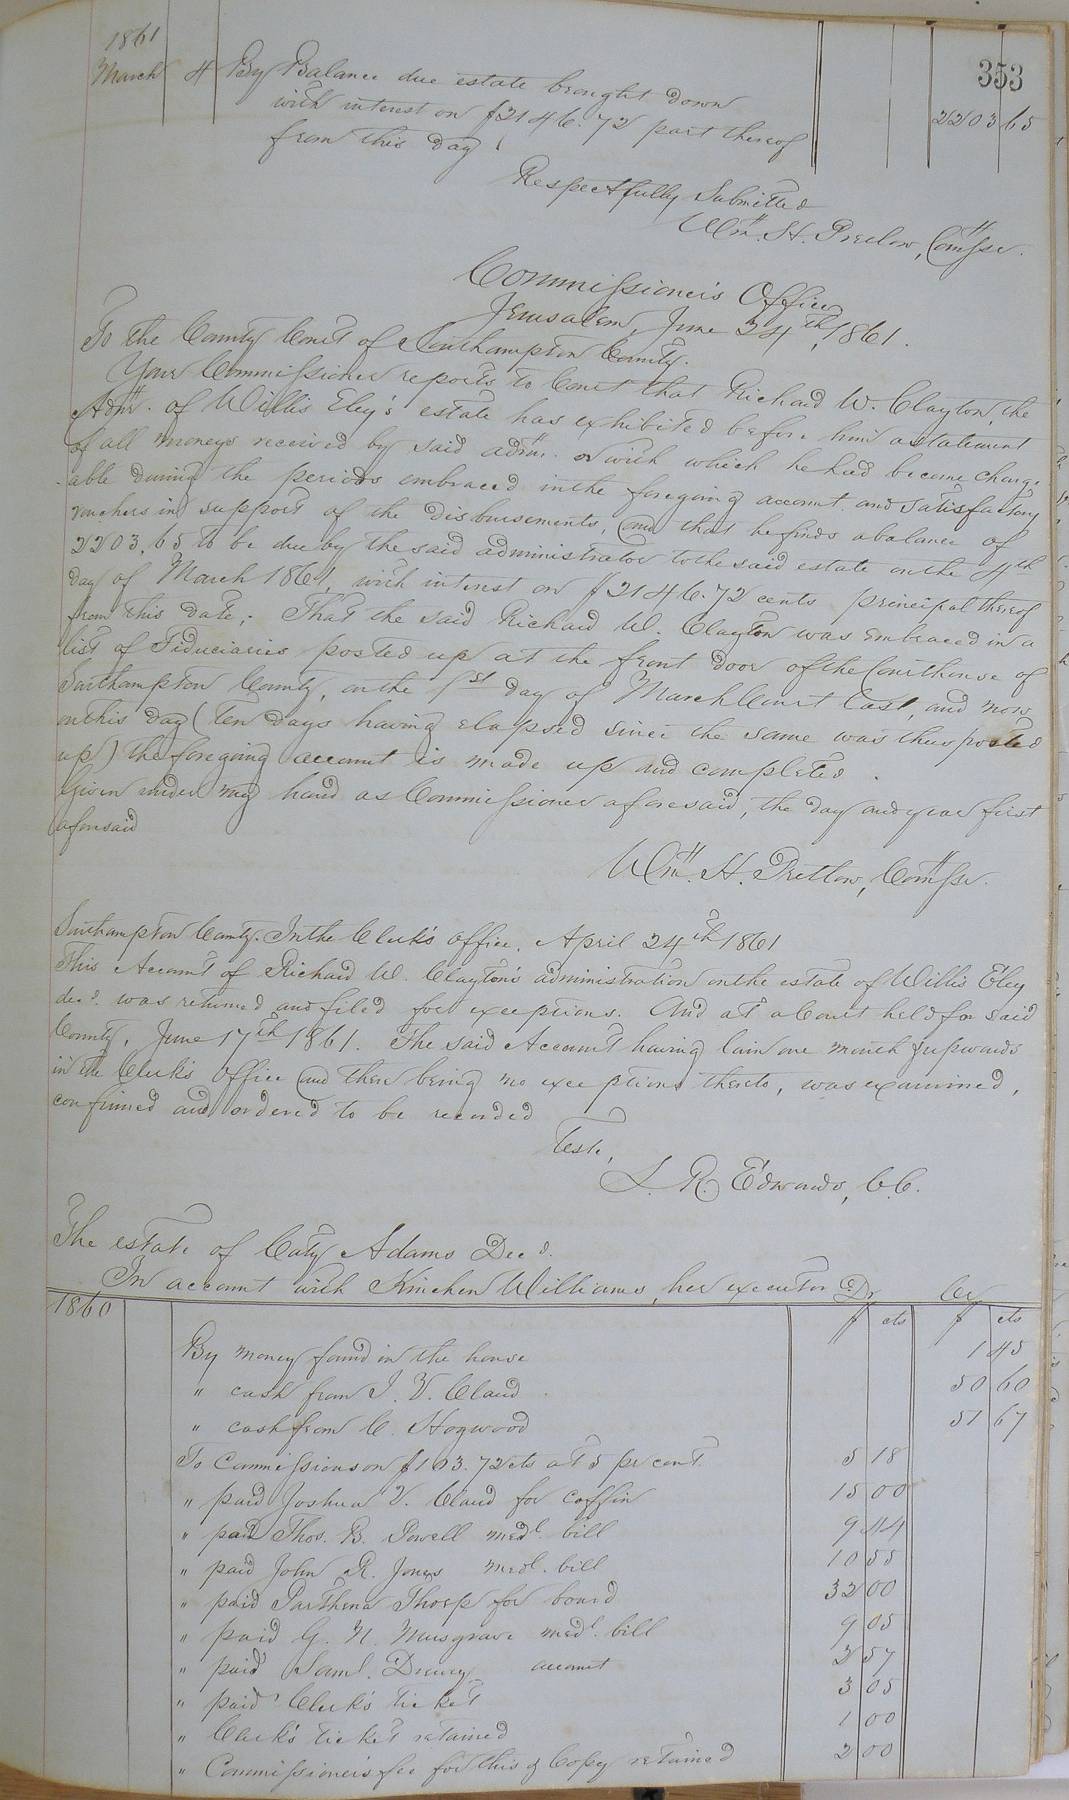 353
1861
March 4 By Balance due estate brought down
with interest on $2146.72 part thereof
from this day 2203 65
Respectfully Submitted
Wm. H. Pretlow, Comssr.
Commissioner's Office
Jerusalem, June 24th, 1861.
To the County Court of Southampton County.
Your Commissioner reports to Court that Richard W. Clayton, the
Admr. of Willis Eley's estate has exhibited before him a statement
of all moneys received by said admr. or with which he had become charge-
able during the periods embraced in the foregoing account and satisfactory
vouchers in support of the disbursements, and that he finds a balance of
2203.65 to be due by the said administrator to the said estate on the 4th
day of March 1861, with interest on $2146.72 cents principal thereof
from this date. That the said Richard W. Clayton was embraced in a
list of Fiduciaries posted up at the front door of the Courthouse of
Southampton County, on the 1st day of March Court last, and now
on this day (ten days having elapsed since the same was thus posted
up) the foregoing account is made up and completed.
Given under my hand as Commissioner aforesaid, the day and year first
aforesaid
Wm. H. Pretlow, Comssr.
Southampton County. In the Clerk's office, April 24th 1861
This Account of Richard W. Clayton's administration on the estate of Willis Eley
decd. was returned and filed for exceptions. And at a Court held for said
County, June 17th 1861. The said Account having lain one month & upwards
in the Clerk's Office and there being no exceptions thereto, was examined,
confirmed and ordered to be recorded
Teste,
L. R. Edwards, C.C.
The estate of Caty Adams Decd.
In account with Kinchen Williams, her executor Dr Cr
1860 $ cts $ cts
By money found in the house 1 45
" cash from J. V. Claud 50 60
" cash from C. Hogwood 51 67
To Commission on $103.72 cts at 5 pr cent. 5 18
" paid Joshua V. Claud for coffin 15 00
" paid Thos. B. Powell medl. bill 9 44
" paid John R. Jones medl. bill 10 55
" paid Parthena Thorp for board 32 00
" paid G. N. Musgrave medl. bill 9 05
" paid Saml. Drewry account 2 57
" paid Clerk's ticket 3 05
" Clerk's ticket retained 1 00
" Commissioner's fee for this & Copy retained 2 00